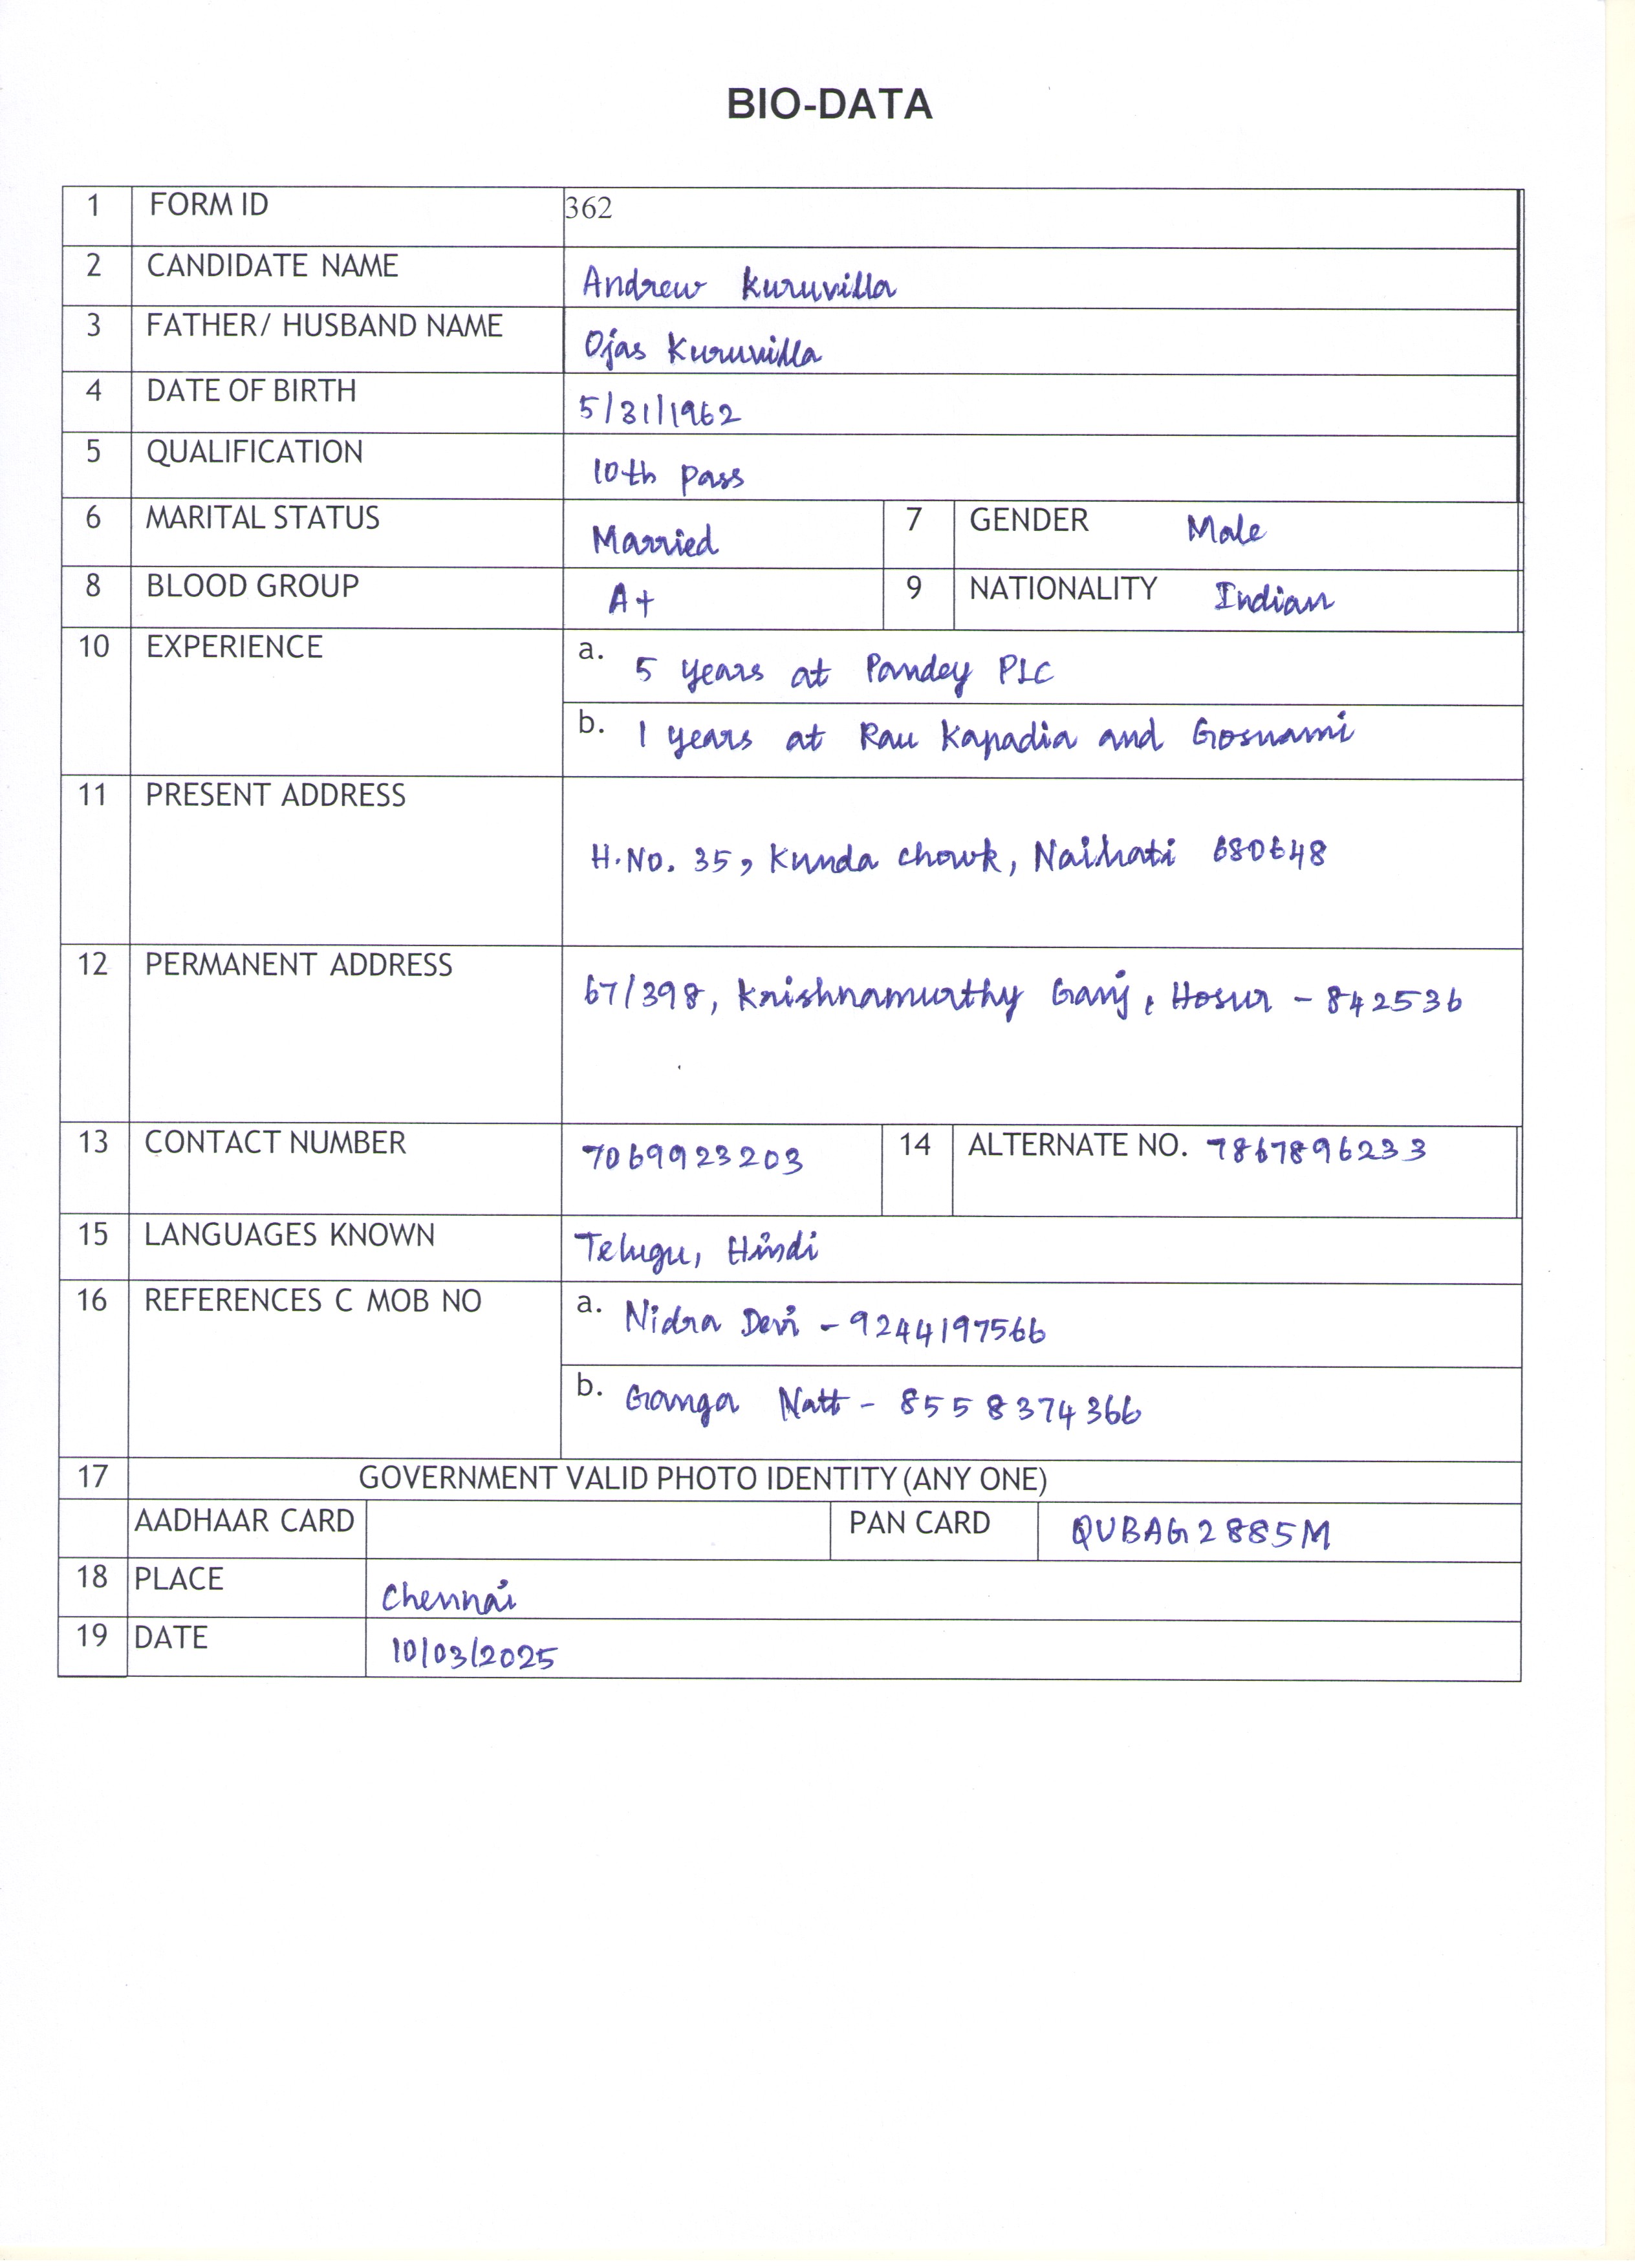 BIO-DATA
1 FORM ID 362
2 CANDIDATE NAME Andrew Kuruvilla
3 FATHER/ HUSBAND NAME Ojas Kuruvilla
4 DATE OF BIRTH 5/31/1962
5 QUALIFICATION 10th pass
6 MARITAL STATUS Married 7 GENDER Male
8 BLOOD GROUP A+ 9 NATIONALITY Indian
10 EXPERIENCE a. 5 years at Pandey PLC
b. 1 years at Rau Kapadia and Goswami
11 PRESENT ADDRESS
H.No. 35, Kunda chowk, Naihati 680648
12 PERMANENT ADDRESS 67/398, Krishnamurthy Ganj, Hosur - 842536
13 CONTACT NUMBER 7069923203 14 ALTERNATE NO. 7867896233
15 LANGUAGES KNOWN Telugu, Hindi
16 REFERENCES C MOB NO a. Nidra Devi - 9244197566
b. Ganga Natt - 8558374366
17 GOVERNMENT VALID PHOTO IDENTITY (ANY ONE)
AADHAAR CARD PAN CARD QUBAG2885M
18 PLACE Chennai
19 DATE 10/03/2025